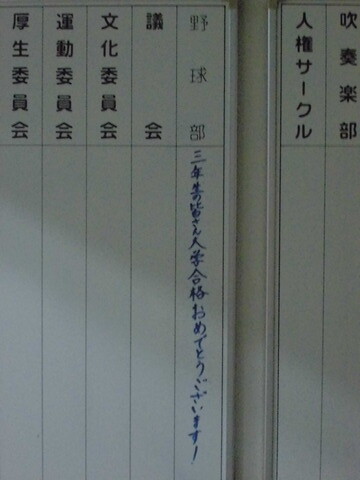 吹奏楽部
人権サークル
野球部
三年の皆さん入学合格おめでとうございます!
議会
文化委員会
運動委員会
厚生委員会